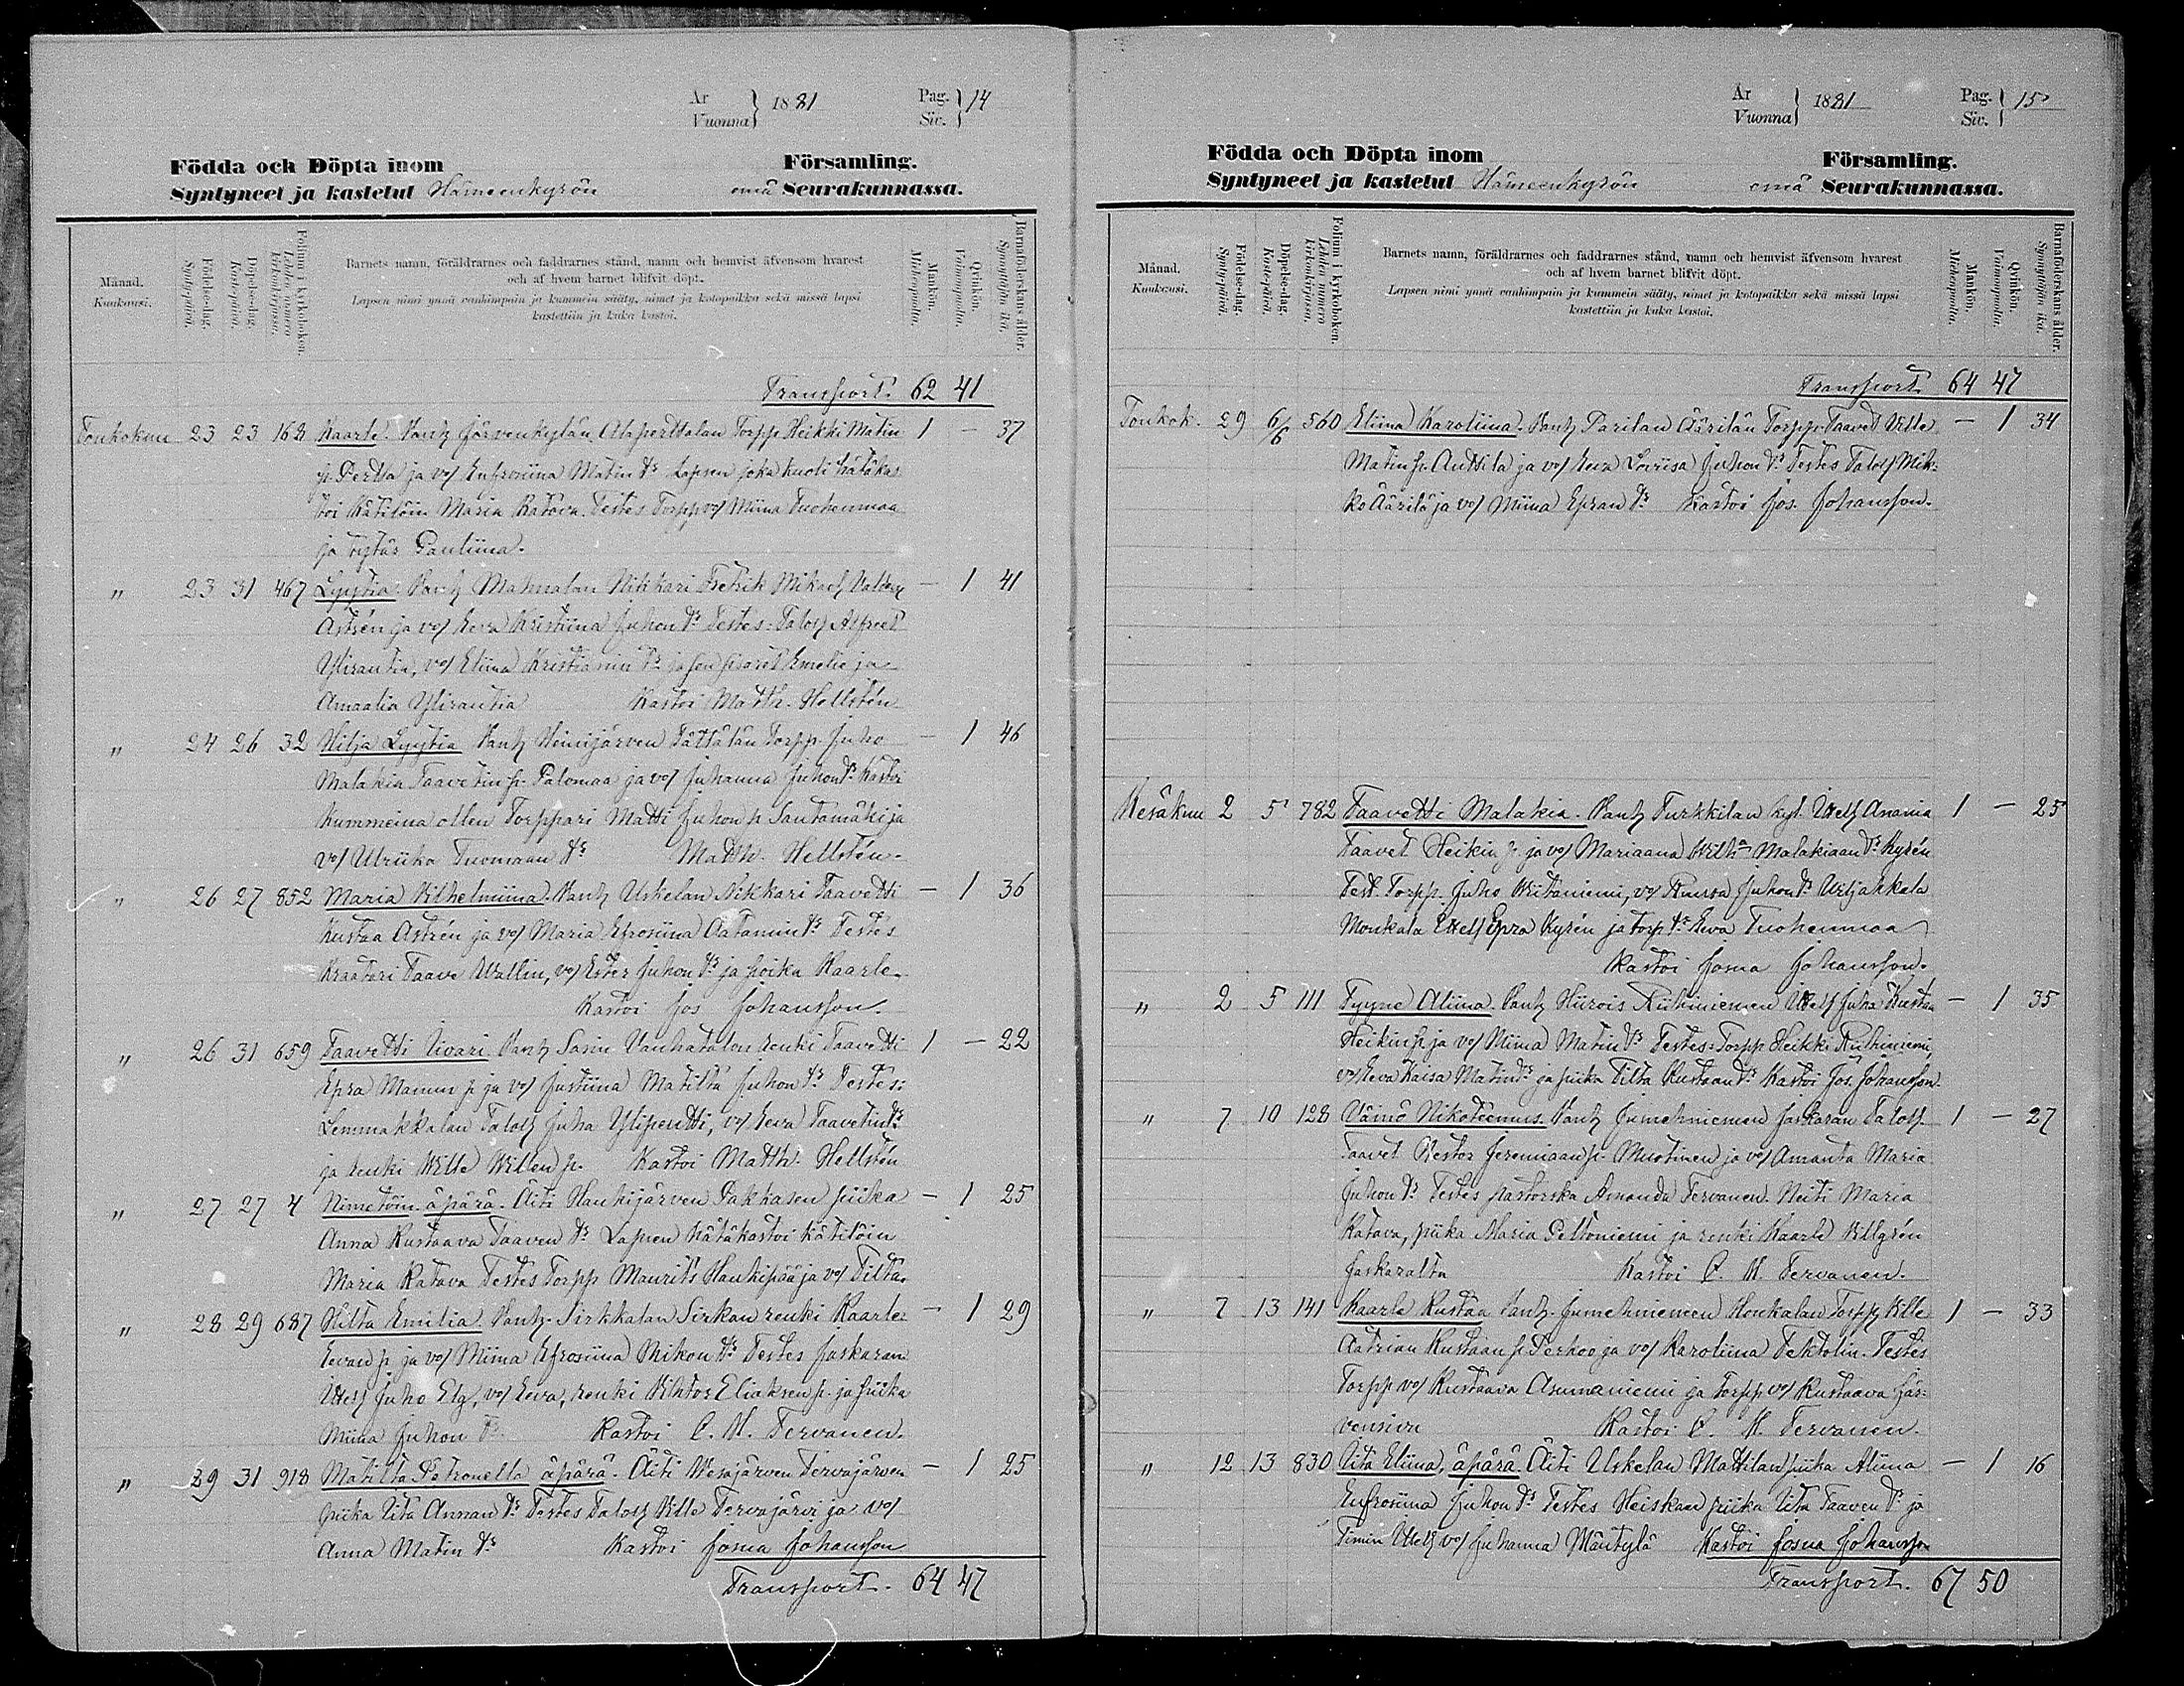 År
Vuonna } 1881 Pag.
Siv. } 14
Födda och Döpta inom Församling.
Syntyneet ja kastetut Hämeenkyrön emä Seurakunnassa.
Månad.
Kuukausi.
Födelse-dag.
Syntypäivä.
Döpelse-dag.
Kastepäivä.
Folium i kyrkoboken.
Lehden numero kirkonkirjassa.
Barnets namn, föräldrarnes och faddrarnes stånd, namn och hemvist äfvensom hvarest
och af hvem barnet blifvit döpt.
Lapsen nimi ynnä vanhimpain ja kummein sääty, nimet ja kotopaikka sekä missä lapsi
kastettiin ja kuka kastoi.
Mankön.
Miehenpuolia.
Qvinkön.
Vaimonpuolia.
Barnaföderskans ålder.
Synnyttäjän ikä.
Transport. 62 41
Toukokuu 23 23 168 Kaarle. Vanh Järvenkylän Alaperttalan Torpp Heikki Matin 1 — 37
p. Pertta ja vo/ Eufrosiina Matin tr Lapsen joka kuoli hätäkas
toi Kätilöin Maria Katava. Testes Torpp vo/ Miina Tuohenmaa
ja tytär Pauliina.
" 23 31 467 Lyytia. Vanh Mahnalan Nikkari Fretrik Mikael — 1 41
Astrén ja vo/ Eeva Kristiina Juhon tr Testes: Talol/ Alfret
Ylirantia, vo/ Eliina Kristianin tr ja sen sisaret Emelie ja
Amaalia Ylirantia Kastoi Matth. Hellstén
" 24 26 32 Hilja Lyytia Vanh Heinijärven Tättälän Torpp. Juho — 1 46
Malakia Taavetin p. Palomaa ja vo/ Juhanna Juhon tr Kastoi
Kummeina ollen Torppari Matti Juhon p Santamäki ja
vo/ Ulriika Tuomaan tr Matth. Hellstén.
" 26 27 852 Maria Vilhelmiina. Vanh Uskelan Nikkari Taavetti — 1 36
Kustaa Astrén ja vo/ Maria Efrosiina Aatamin tr Testes
Kraatari Taave Wallin, vo/ Ester Juhon tr ja poika Kaarle.
Kastoi Jos Johansson.
" 26 31 659 Taavetti Iivari. Vanh Sasin Vanhatalon renki Taavetti 1 — 22
Epra Manun p ja vo/ Justiina Matilta Juhon tr Testes:
Lemmakkalan Talol/ Juha Ylipentti, vo/ Eeva Taavetin tr
ja renki Wille Willen p. Kastoi Matth. Hellstén
" 27 27 4 Nimetöin äpärä. Äiti Haukijärven Pakkasen piika — 1 25
Anna Kustaava Taaven tr Lapsen hätäkastoi kätilöin
Maria Katava Testes Torpp Maurits Haukipää ja vo/ Tilta.
" 28 29 687 Hilta Emilia. Vanh. Sirkkalan Sirkan renki Kaarle — 1 29
Eevan p ja vo/ Miina Efrosiina Mikon tr Testes Jaskaran
Ittel/ Juho Elg, vo/ Eeva, renki Vihtor Eliaksen p. ja piika
Miina Juhon tr Kastoi C. M. Tervanen.
" 29 31 918 Matilta Petronella äpärä. Äiti Vesajärven Tervajärven — 1 25
piika Iita Annan tr Testes Talol/ Ville Tervajärvi ja vo/
Anna Matin tr Kastoi Josua Johansson
Transport. 64 47
År
Vuonna } 1881 Pag.
Siv. } 15
Födda och Döpta inom Församling.
Syntyneet ja kastetut Hämeenkyrön emä Seurakunnassa.
Månad.
Kuukausi.
Födelse-dag.
Syntypäivä.
Döpelse-dag.
Kastepäivä.
Folium i kyrkoboken.
Lehden numero kirkonkirjassa.
Barnets namn, föräldrarnes och faddrarnes stånd, namn och hemvist äfvensom hvarest
och af hvem barnet blifvit döpt.
Lapsen nimi ynnä vanhimpain ja kummein sääty, nimet ja kotopaikka sekä missä lapsi
kastettiin ja kuka kastoi.
Mankön.
Miehenpuolia.
Qvinkön.
Vaimonpuolia.
Barnaföderskans ålder.
Synnyttäjän ikä.
Transport. 64 47
Toukok. 29 6/6 560 Eliina Karoliina. Vanh Parilan Äärilän Torpp. Taavet Ville — 1 34
Matin p. Anttila ja vo/ Eeva Loviisa Juhon tr Testes Talol/ Mik-
ko Äärilä ja vo/ Miina Epran tr Kastoi Jos. Johansson.
Kesäkuu 2 5 782 Taavetti Malakia. Vanh Turkkilan kyl. Ittel/ Anania 1 — 25
Taavet Heikin p. ja vo/ Mariaana Wilh:a Malakiaan tr Kyrén
Test. Torpp. Juho Wiitaniemi, vo/ Ruusa Juhon tr Weljakkala
Monkala Ittel/ Epra Kyrén ja torp tr Eeva Tuohenmaa
Kastoi Josua Johansson.
" 2 5 111 Tyyne Aliina. Vanh Hiirois Riihiniemen Ittel/ Juha Kustaa — 1 35
Heikin p ja vo/ Miina Matin tr Testes: Torpp Heikki Riihiniemi,
vo/ Eeva Kaisa Matin tr ja piika Tilta Kustaan tr Kastoi Jos. Johansson.
" 7 10 128 Väinö Nikoteemus. Vanh Jumehniemen Jaskaran Talol/ 1 — 27
Taavet Nestor Jeremiaan p. Mustinen ja vo/ Amanta Maria
Juhon tr Testes pastorska Amanda Tervanen. Neiti Maria
Katava, piika Maria Peltoniemi ja renki Kaarle Villgrén
Jaskaralta Kastoi C. M. Tervanen.
" 7 13 141 Kaarle Kustaa Vanh. Jumehniemen Honkalan Torpp Ville 1 — 33
Aatrian Kustaan p. Perkoo ja vo/ Karoliina Tehtolin. Testes
Torpp vo/ Kustaava Asumaniemi ja torpp vo/ Kustaava Jär-
vensivu Kastoi C. M. Tervanen.
" 12 13 830 Iita Eliina, äpärä. Äiti Uskelan Mattilan piika Aliina — 1 16
Eufrosiina Juhon tr Testes Heiskan piika Iita Taaven tr ja
Timin Ittel/ vo/ Juhanna Mäntylä Kastoi Josua Johansson
Transport. 67 50